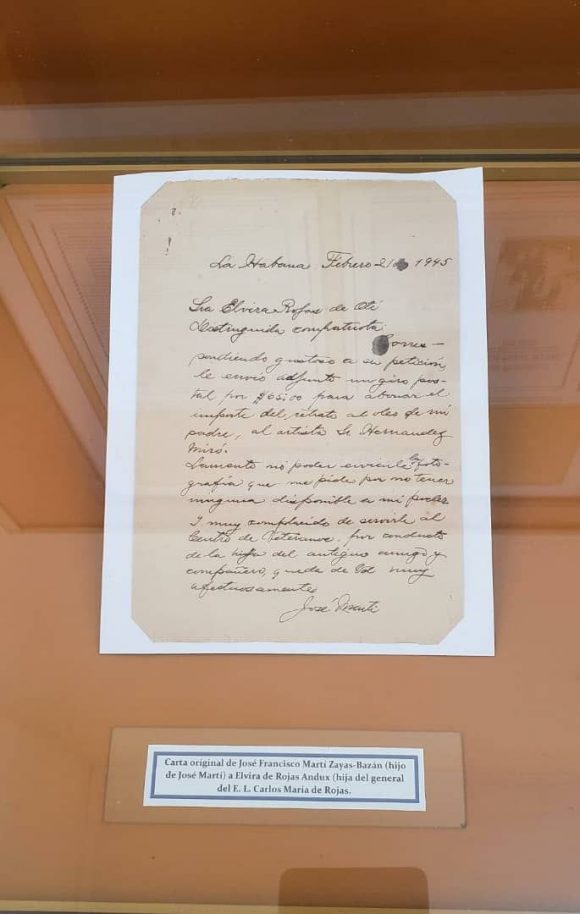 La Habana Febrero 21 1945
Sra Elvira Rojas de Oti
Distinguida compatriota:
Corres-
pondiendo gustoso a su petición,
le envio adjunto un giro pos-
tal por $65.00 para abonar el
importe del retrato al oleo de mi
padre, al artista Sr Hernandez
Miró.
Lamento no poder enviarle la foto-
grafía que me pide por no tener
ninguna disponible a mi poder
Y, muy complacido de servirle al
Centro de Veteranos, por conducto
de la hija del antiguo amigo y
compañero, queda de Vd muy
afectuosamente
José Martí
Carta original de José Francisco Martí Zayas-Bazán (hijo
de José Martí) a Elvira de Rojas Andux (hija del general
del E. L. Carlos María de Rojas.